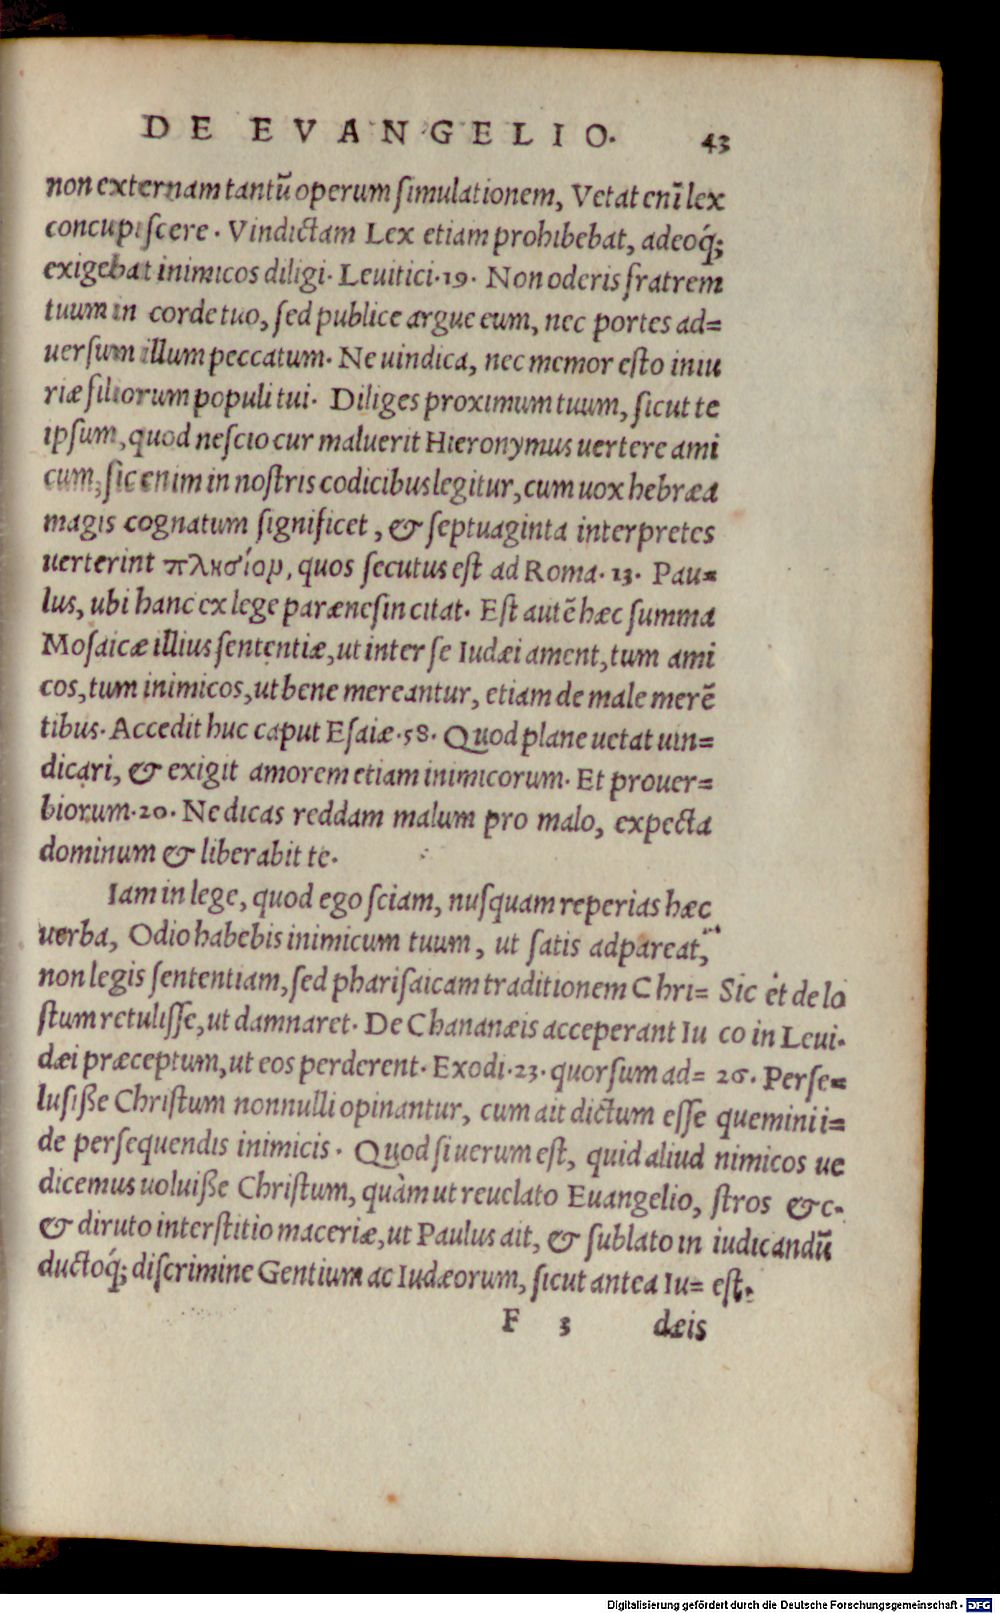 DE EVANGELIO. 43
non externam tantū operum ſimulationem, Vetat enī lex
concupiſcere. Vindictam Lex etiam prohibebat, adeoq́;
exigebat inimicos diligi. Leuitici.19. Non oderis fratrem
tuum in corde tuo, ſed publice argue eum, nec portes ad=
uerſum illum peccatum. Ne uindica, nec memor eſto iniu
riæ filiorum populi tui. Diliges proximum tuum, ſicut te
ipſum, quod neſcio cur maluerit Hieronymus uertere ami
cum, ſic enim in noſtris codicibus legitur, cum uox hebræa
magis cognatum ſignificet, & ſeptuaginta interpretes
uerterint πλησίον, quos ſecutus eſt ad Roma. 13. Pau=
lus, ubi hanc ex lege parænesin citat. Eſt autē hæc ſumma
Moſaicæ illius ſententiæ, ut inter ſe Iudæi ament, tum ami
cos, tum inimicos, ut bene mereantur, etiam de male merē
tibus. Accedit huc caput Eſaiæ.58. Quod plane uetat uin=
dicari, & exigit amorem etiam inimicorum. Et prouer=
biorum.20. Ne dicas reddam malum pro malo, expecta
dominum & liberabit te.
Iam in lege, quod ego ſciam, nuſquam reperias hæc
uerba, Odio habebis inimicum tuum, ut ſatis adpareat,
non legis ſententiam, ſed phariſaicam traditionem Chri=
ſtum retuliſſe, ut damnaret. De Chananæis acceperant Iu
dæi præceptum, ut eos perderent. Exodi.23. quorſum ad=
luſiße Chriſtum nonnulli opinantur, cum ait dictum eſſe
de perſequendis inimicis. Quod ſi uerum eſt, quid aliud
dicemus uoluiße Chriſtum, quàm ut reuelato Euangelio,
& diruto interſtitio maceriæ, ut Paulus ait, & ſublato in
ductoq́; diſcrimine Gentium ac Iudæorum, ſicut antea Iu=
Sic et de lo
co in Leui.
26. Perſe=
quemini i=
nimicos ue
ſtros &c.
iudicandū
eſt.
F 3 dæis
Digitalisierung gefördert durch die Deutsche Forschungsgemeinschaft - DFG